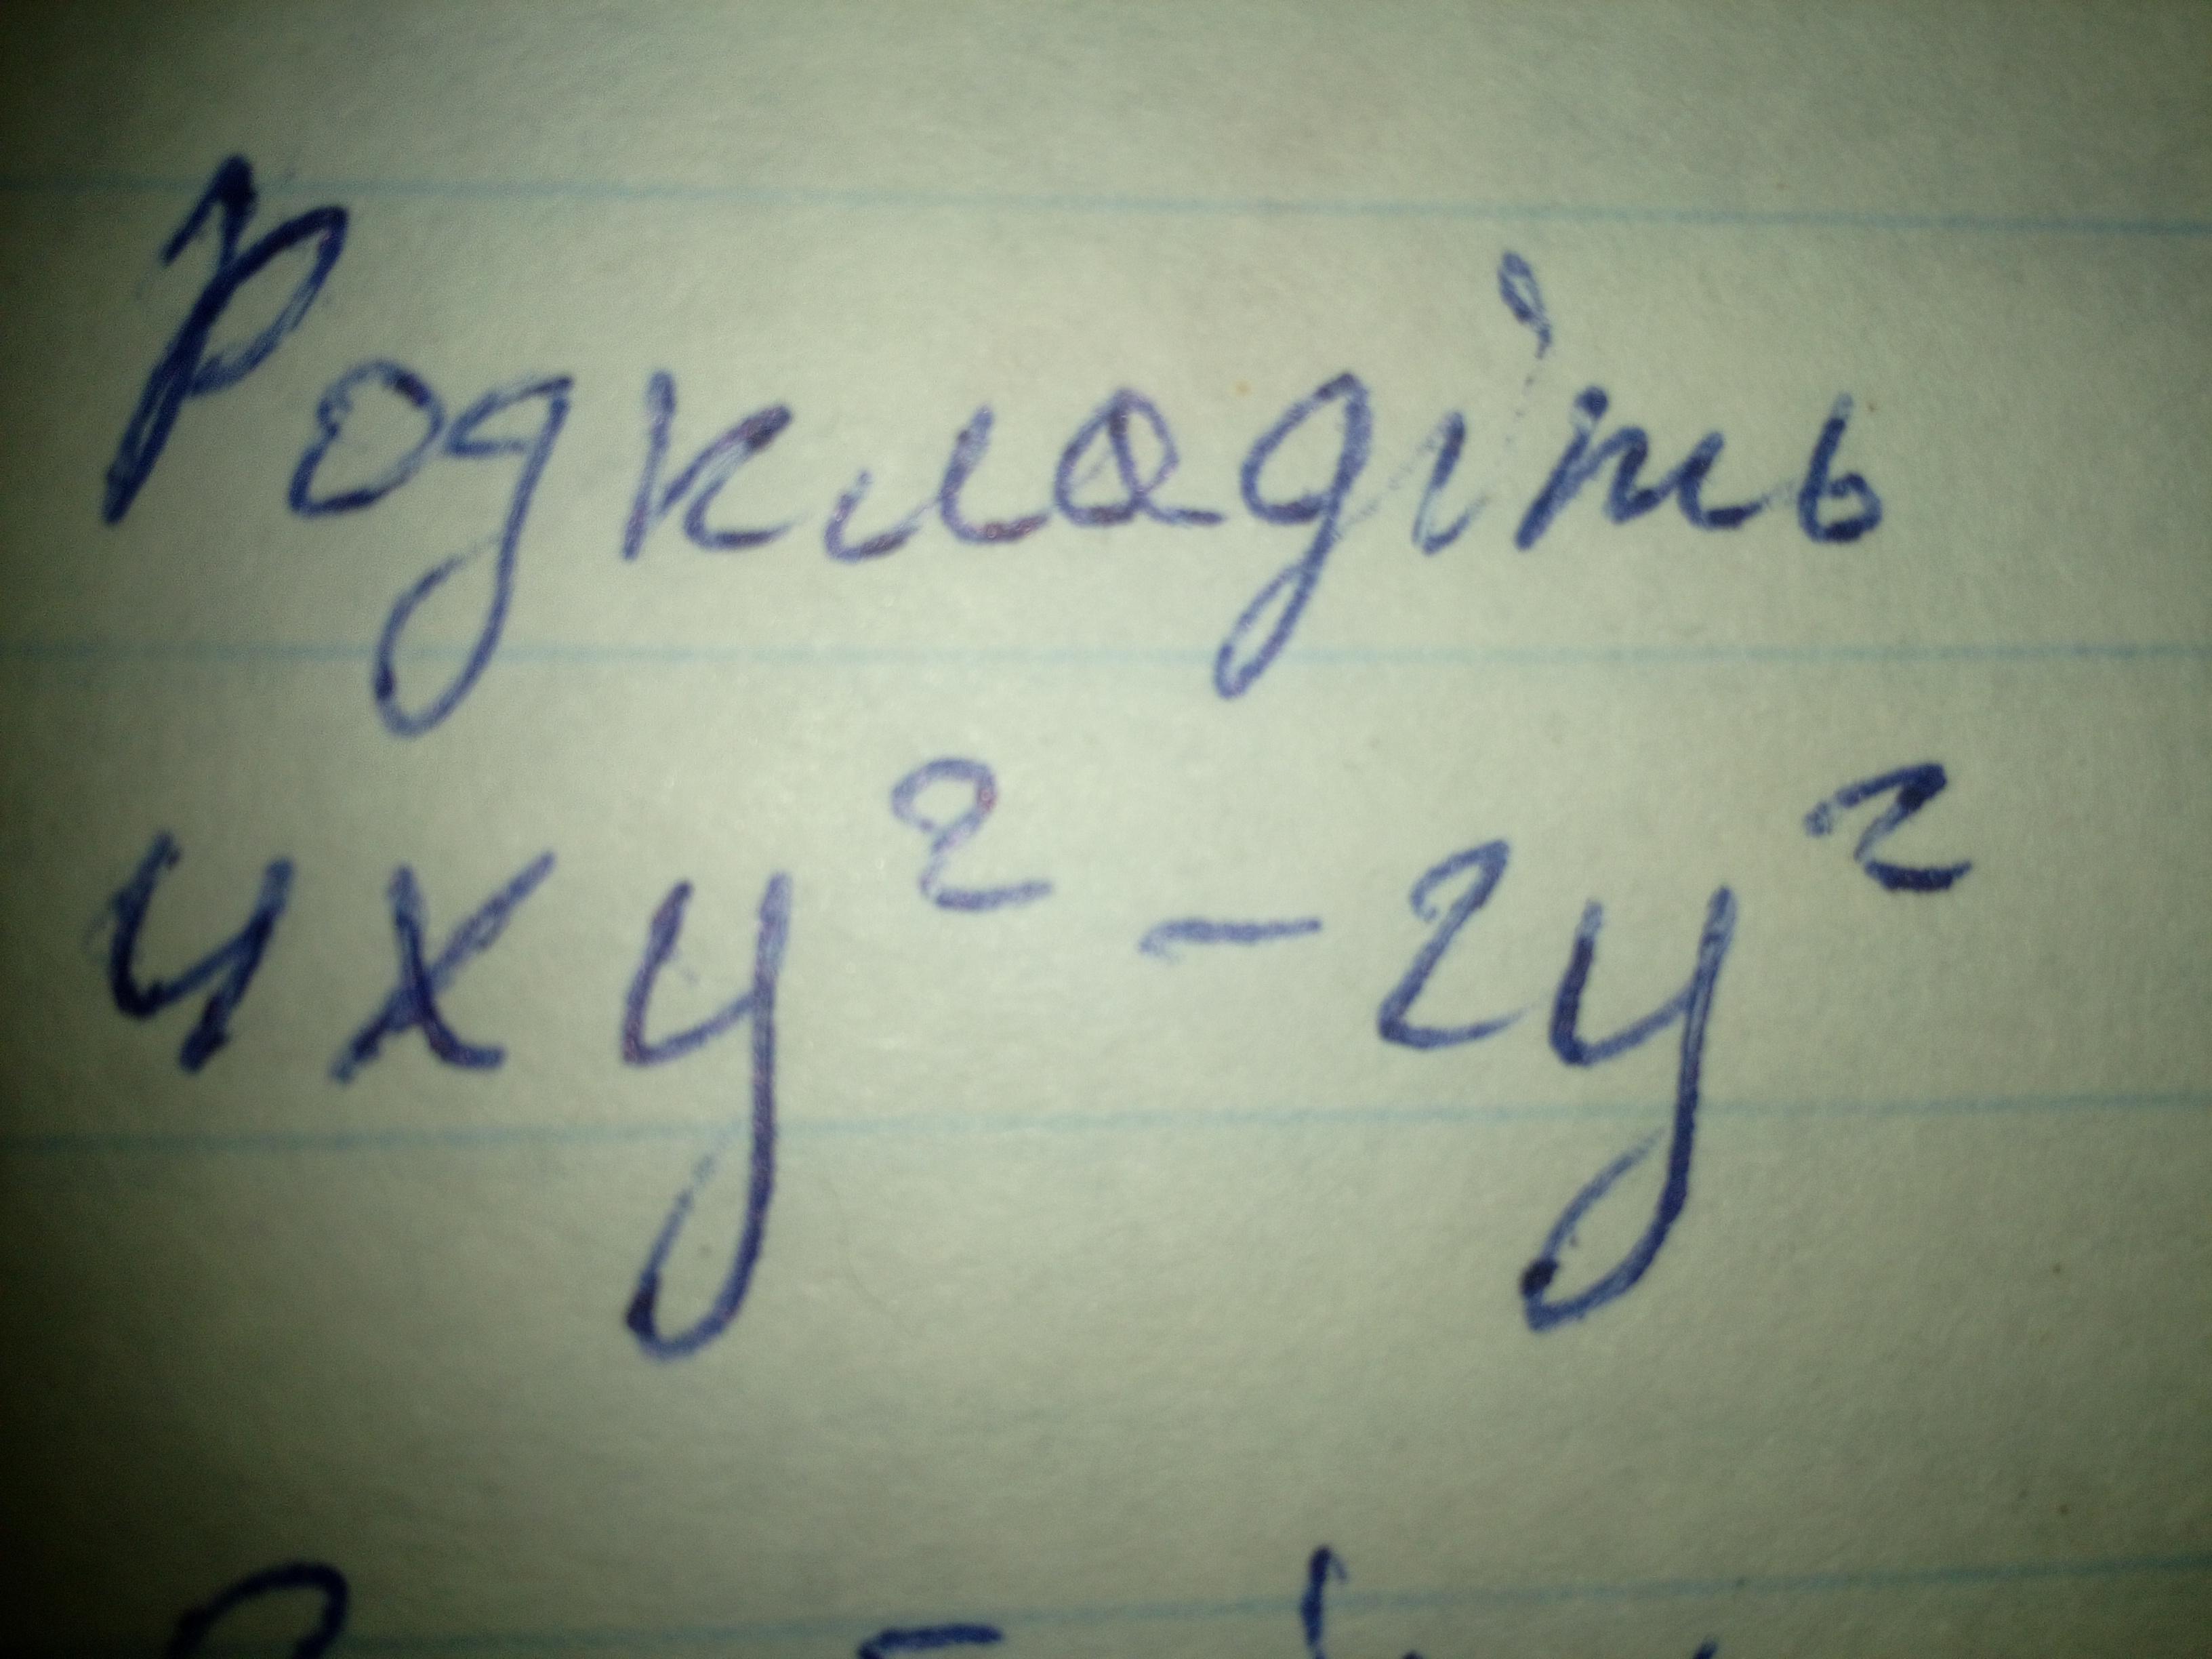 Родкладіть
4xy² - 2y²